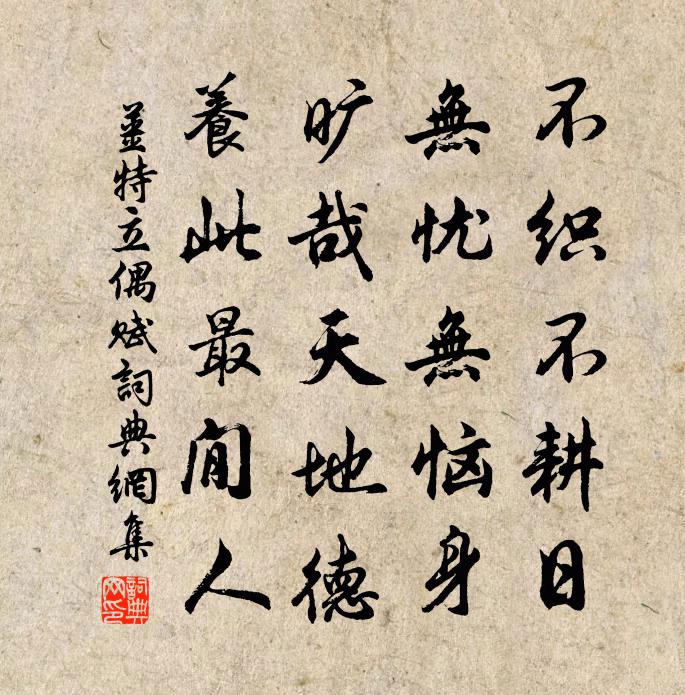 不织不耕日
無忧無恼身
旷哉天地德
養此最闲人
姜特立偶赋詞典網集
詞典网印